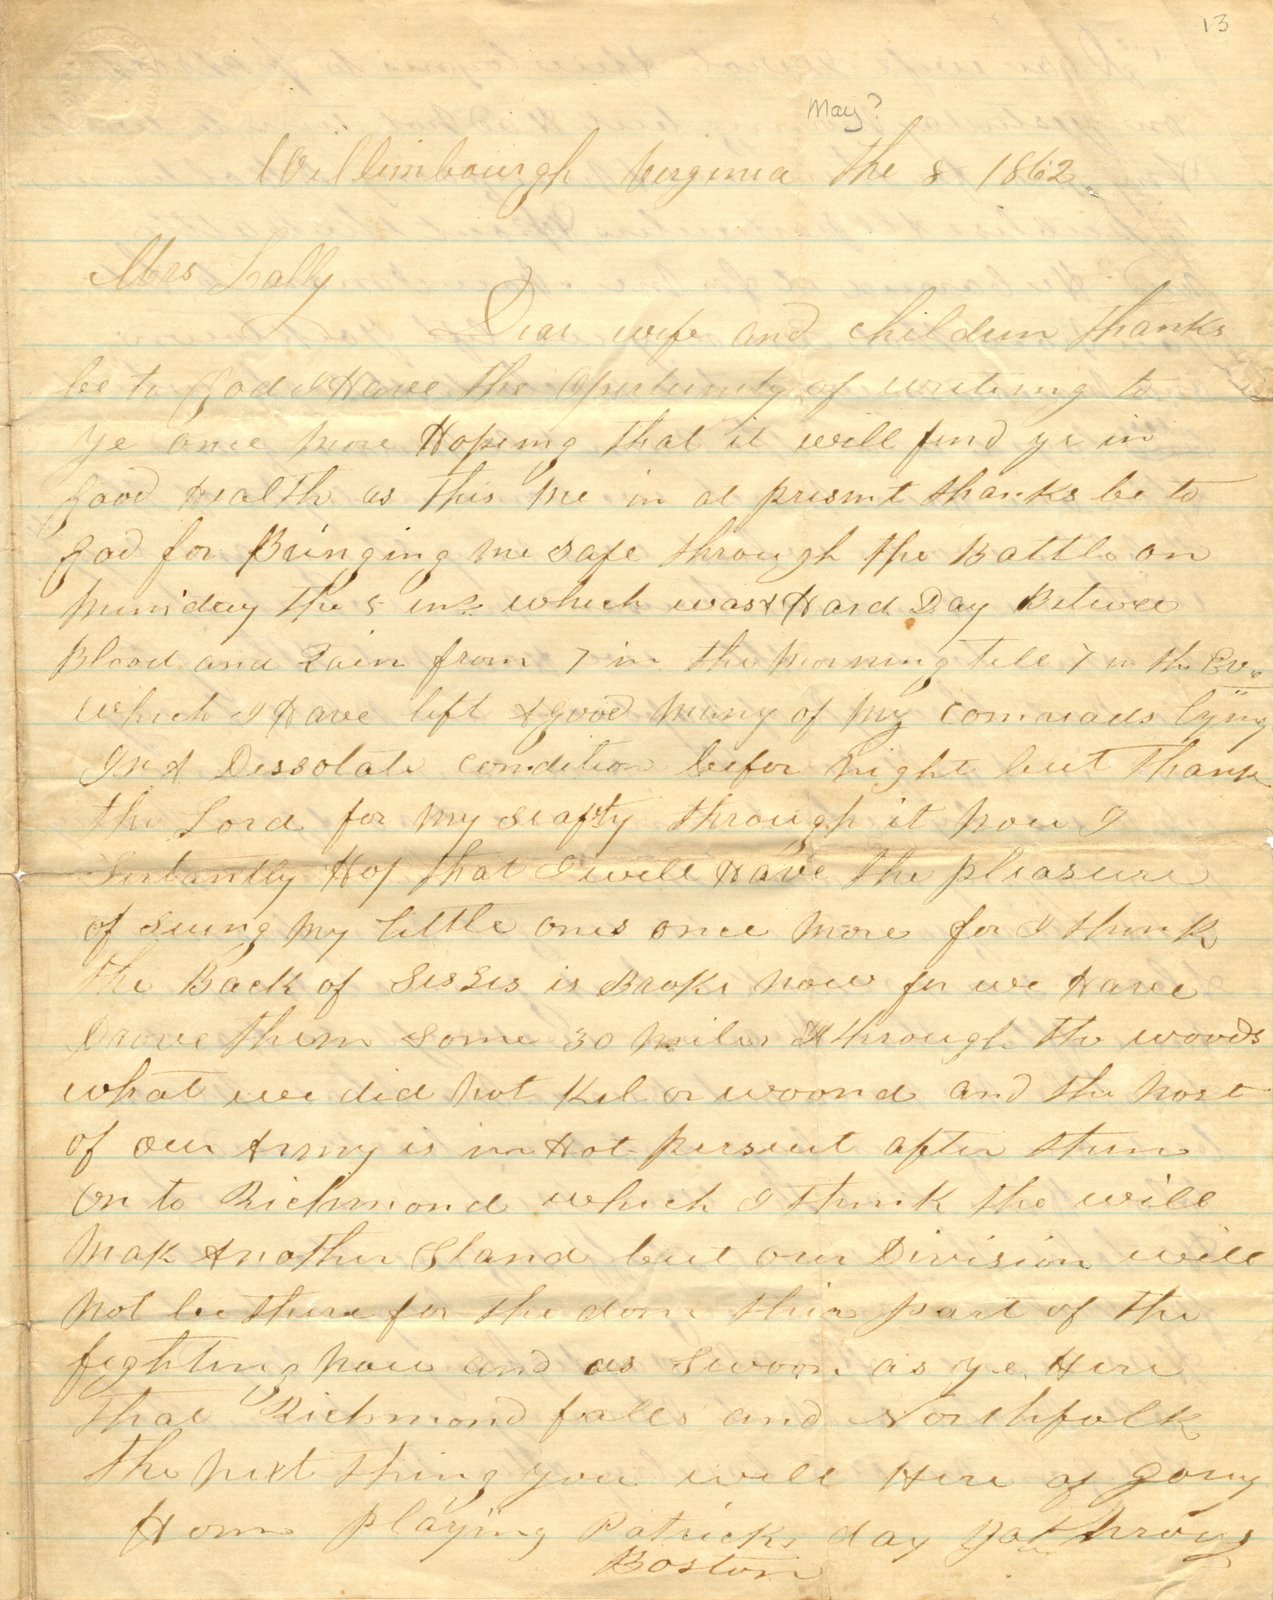 13
May?
Willimbourgh Virginia the 8 1862
Mrs Lally
Dear wife and children thanks
be to God I Have the opertunity of writing to
ye once more Hoping that it will find ye in
good Health as this me in at presnt thanks be to
god for Bringing me safe through the Battle on
the 5 which was A Hard Day Betwee
Blood and Rain from 7 in the morning till 7 in the Ev
which I Have left A good many of my comrads lying
In A Dessolate condition befor night but thank
the Lord for my seafty through it now I
Hop that I will Have the pleasure
of seeing my little ones once more for I think
the Back of Seses is Broke now for we Have
Drove them some 30 miles through the woods
what we did not Kil or woond and the most
of our Army is in Hot persuit after them
on to Richmond which I think the will
mak Another Stand but our Division will
not be there for the don thir part of the
fighting now and as swoon as ye Here
that Richmond falls and Northfolk
the next thing you will Here of gong
Hom playing Patricks day
Boston